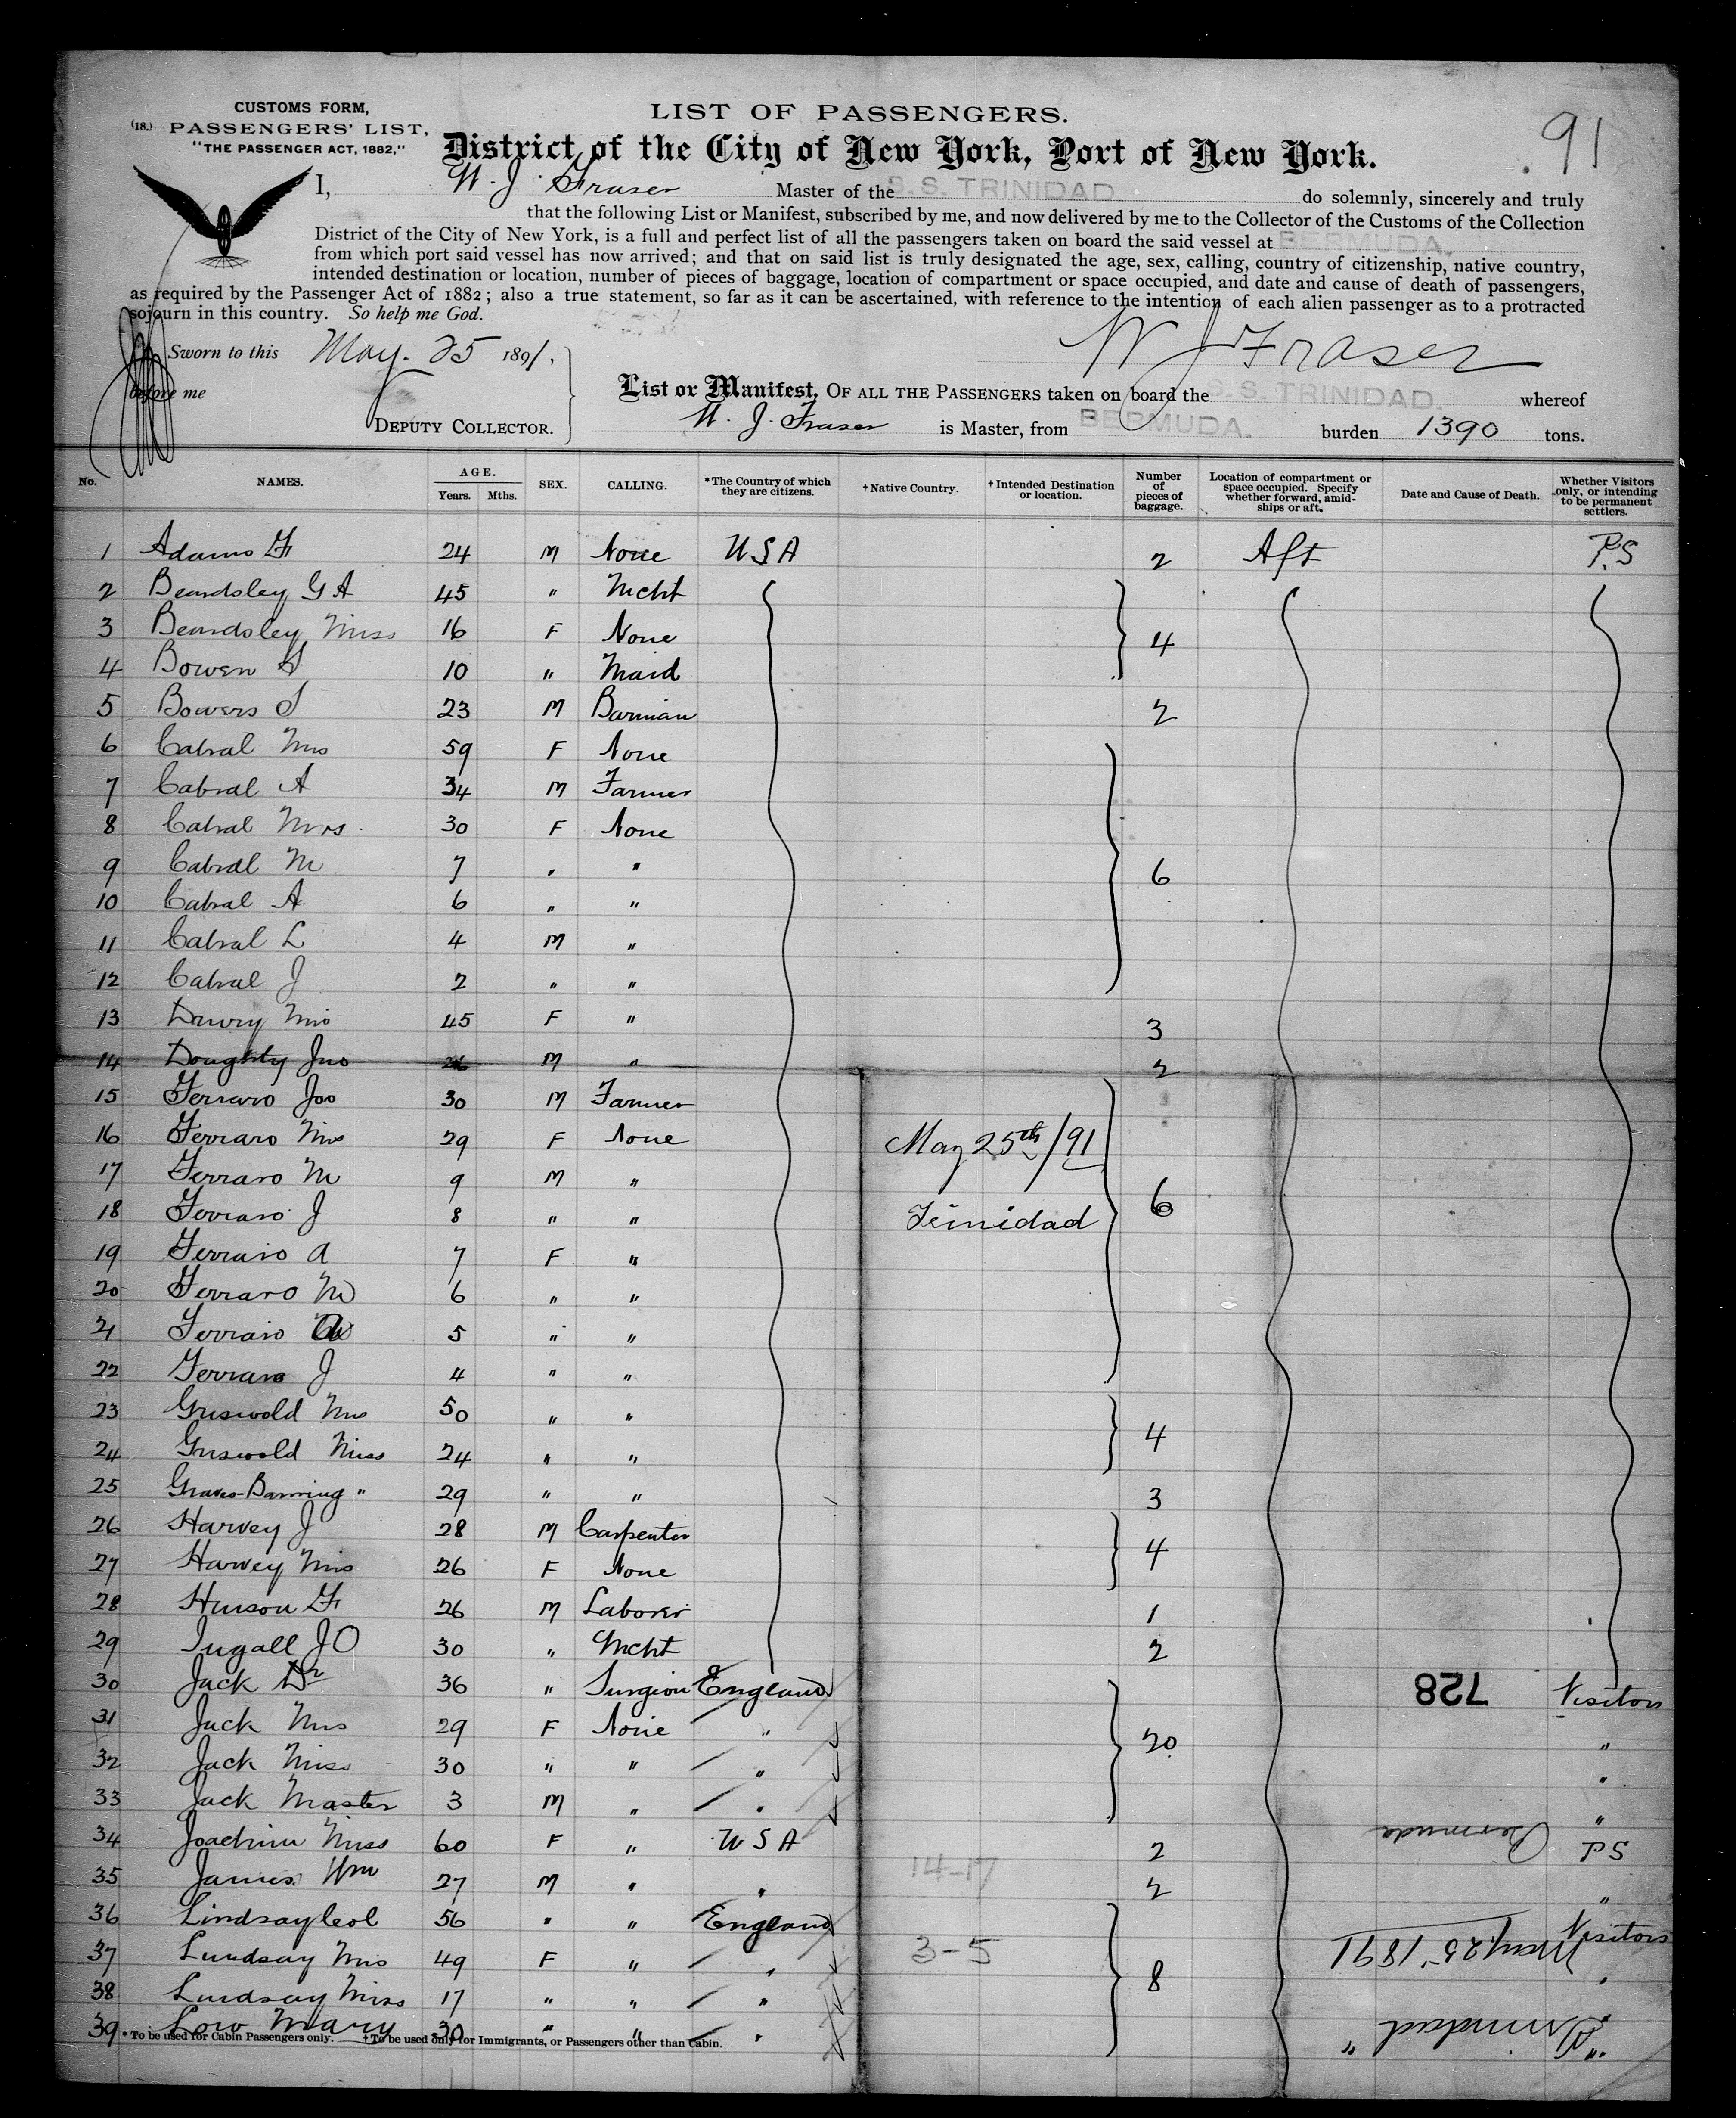 CUSTOMS FORM,
(18.) PASSENGERS' LIST,
"THE PASSENGER ACT, 1882,"
LIST OF PASSENGERS.
District of the City of New York, Port of New York.
91
I, W. J. Fraser Master of the S. S. TRINIDAD do solemnly, sincerely and truly
that the following List or Manifest, subscribed by me, and now delivered by me to the Collector of the Customs of the Collection
District of the City of New York, is a full and perfect list of all the passengers taken on board the said vessel at BERMUDA,
from which port said vessel has now arrived; and that on said list is truly designated the age, sex, calling, country of citizenship, native country,
intended destination or location, number of pieces of baggage, location of compartment or space occupied, and date and cause of death of passengers,
as required by the Passenger Act of 1882; also a true statement, so far as it can be ascertained, with reference to the intention of each alien passenger as to a protracted
sojourn in this country. So help me God.
Sworn to this May. 25 1891.
W J Fraser
before me
DEPUTY COLLECTOR.
List or Manifest, OF ALL THE PASSENGERS taken on board the S. S. TRINIDAD. whereof
W. J. Fraser is Master, from BERMUDA. burden 1390 tons.
No. NAMES. AGE. Years. Mths. SEX. CALLING. *The Country of which they are citizens. †Native Country. †Intended Destination or location. Number of pieces of baggage. Location of compartment or space occupied. Specify whether forward, amidships or aft. Date and Cause of Death. Whether Visitors only, or intending to be permanent settlers.
1 Adams F 24 M None USA 2 Aft P.S
2 Beardsley G A 45 " Mcht
3 Beardsley Miss 16 F None 4
4 Bowen S 10 " Maid
5 Bowers S 23 M Barman 2
6 Cabral Mrs 59 F None
7 Cabral A 34 M Farmer
8 Cabral Mrs 30 F None
9 Cabral M 7 " " 6
10 Cabral A 6 " "
11 Cabral L 4 M "
12 Cabral J 2 " "
13 Drury Mrs 45 F " 3
14 Doughty Jno 26 M " 2
15 Ferraro Joo 30 M Farmer
16 Ferraro Mrs 29 F None May 25th/91
17 Ferraro M 9 M "
18 Ferraro J 8 " " Trinidad 6
19 Ferraro A 7 F "
20 Ferraro M 6 " "
21 Ferraro 5 " "
22 Ferraro J 4 " "
23 Griswold Mrs 50 " "
24 Griswold Miss 24 " " 4
25 Graves-Banning " 29 " " 3
26 Harvey J 28 M Carpenter
27 Harvey Mrs 26 F None 4
28 Hinson F 26 M Laborer 1
29 Ingall J O 30 " Mcht 2
30 Jack Dr 36 " Surgion England 728 Visitors
31 Jack Mrs 29 F None " 20 "
32 Jack Miss 30 " " " "
33 Jack Master 3 M " " "
34 Joachim Miss 60 F " U S A 2 Bermuda PS
35 James Wm 27 M " " 14-17 2 "
36 Lindsay Col 56 " " England Visitors
37 Lindsay Mrs 49 F " " 3-5 May 25" 1891 "
38 Lindsay Miss 17 " " " 8
39 Low Mary 30 " " " Trinidad "
*To be used for Cabin Passengers only. †To be used only for Immigrants, or Passengers other than Cabin.